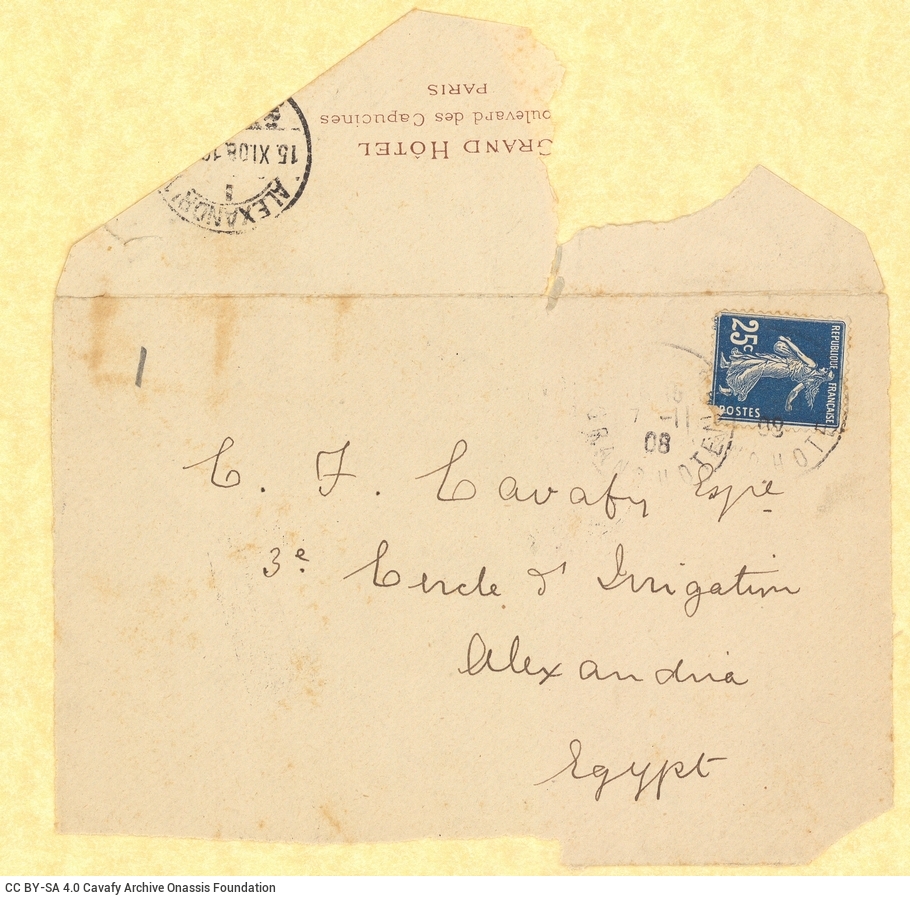 PARIS
oulevard des Capucines
GRAND HÔTEL
ALEXANDRI
15. XI.08.1
25c
REPUBLIQUE FRANÇAISE
POSTES
7 -11
08
C. F. Cavafy Esqre
3e. Cercle d' Irrigation
Alexandria
Egypt
CC BY-SA 4.0 Cavafy Archive Onassis Foundation